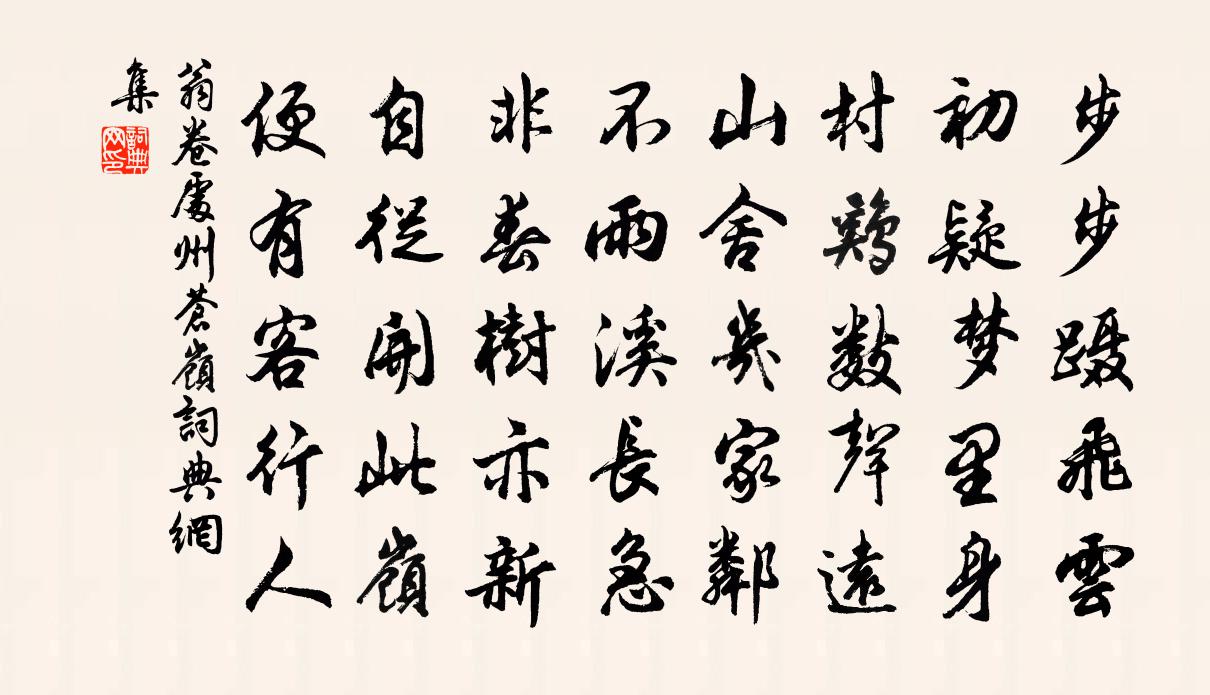 步步蹑飛雲
初疑梦里身
村鷄數聲遠
山舍幾家鄰
不雨溪長急
非春樹亦新
自從開此嶺
便有客行人
翁卷處州蒼嶺詞典網
集
詞典网印